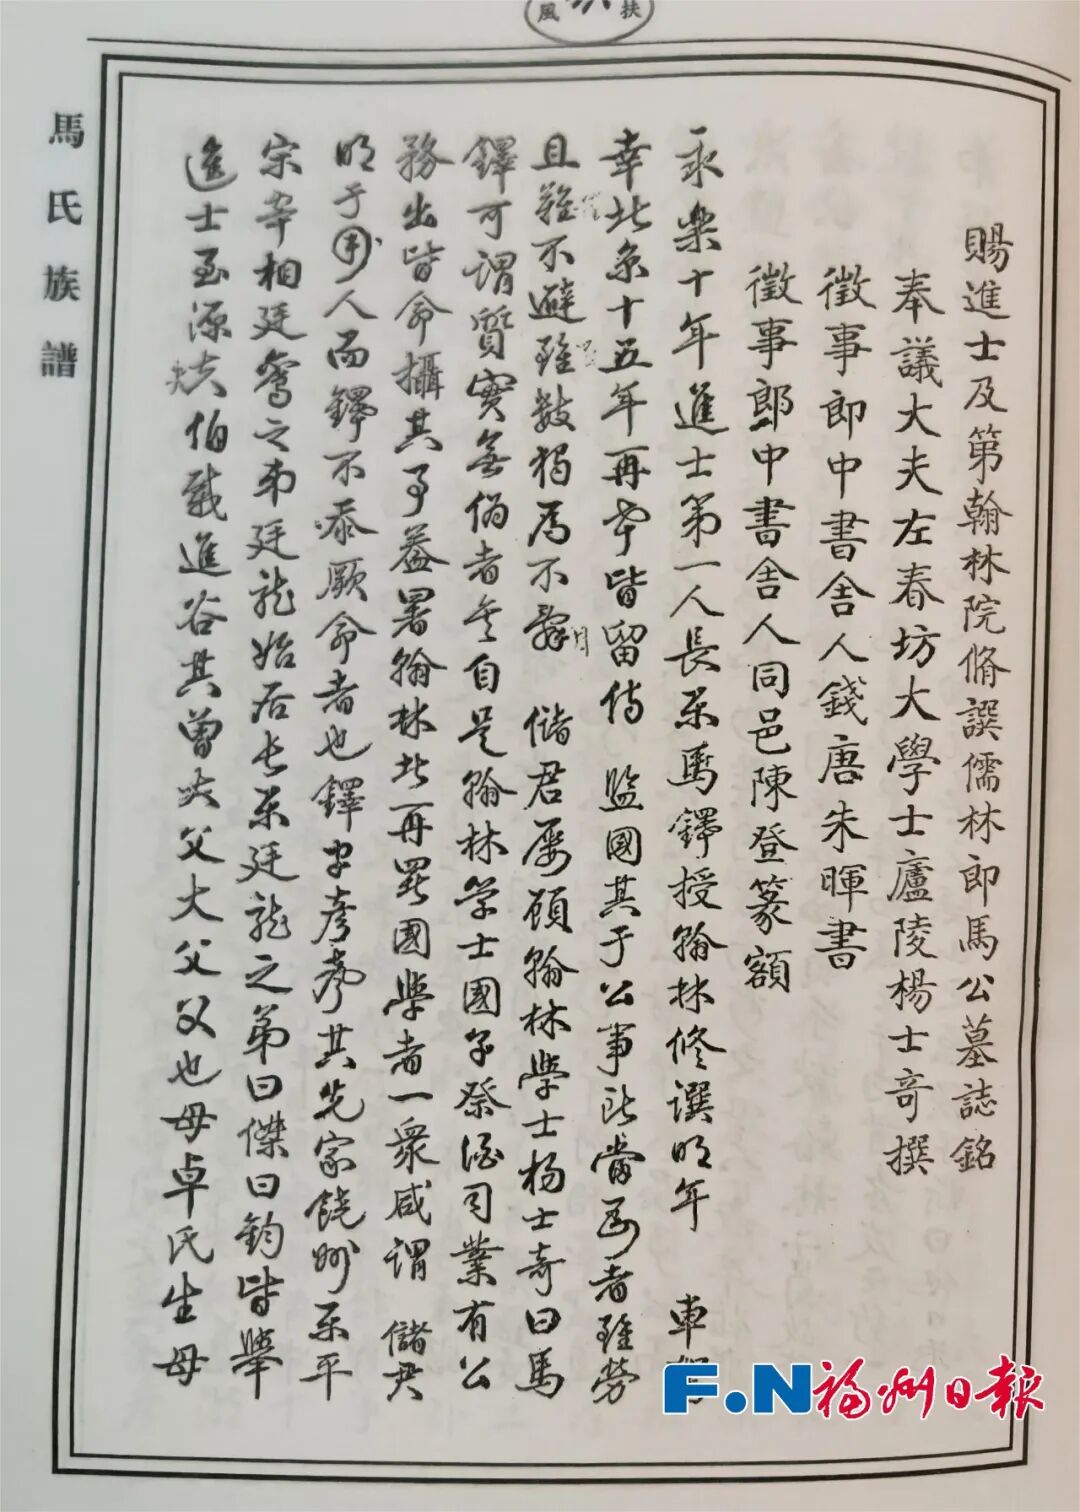 賜進士及第翰林院脩譔儒林郎馬公墓誌銘
奉議大夫左春坊大學士廬陵楊士奇撰
徵事郎中書舍人錢唐朱暉書
徵事郎中書舍人同邑陳登篆額
永樂十年進士第一人長樂馬鐸授翰林修譔明年 車
幸北京十五年再幸皆留侍 監國其于公事所當為者雖勞
且難不避雖數獨為不辭 儲君屢顧翰林學士楊士奇曰馬
鐸可謂質實無偽者矣自是翰林学士國子祭酒司業有公
務出皆命攝其事蓋署翰林北再署國學者一衆咸謂 儲君
明于人而鐸不忝厥命者也鐸字彥其先家饒州樂平
宋宰相廷鸞之弟廷龍始居長樂廷龍之弟曰傑曰鈞皆舉
進士至源伯載進谷其曾大父大父父也母卓氏生母
馬氏族譜
風 扶
F.N福州日報